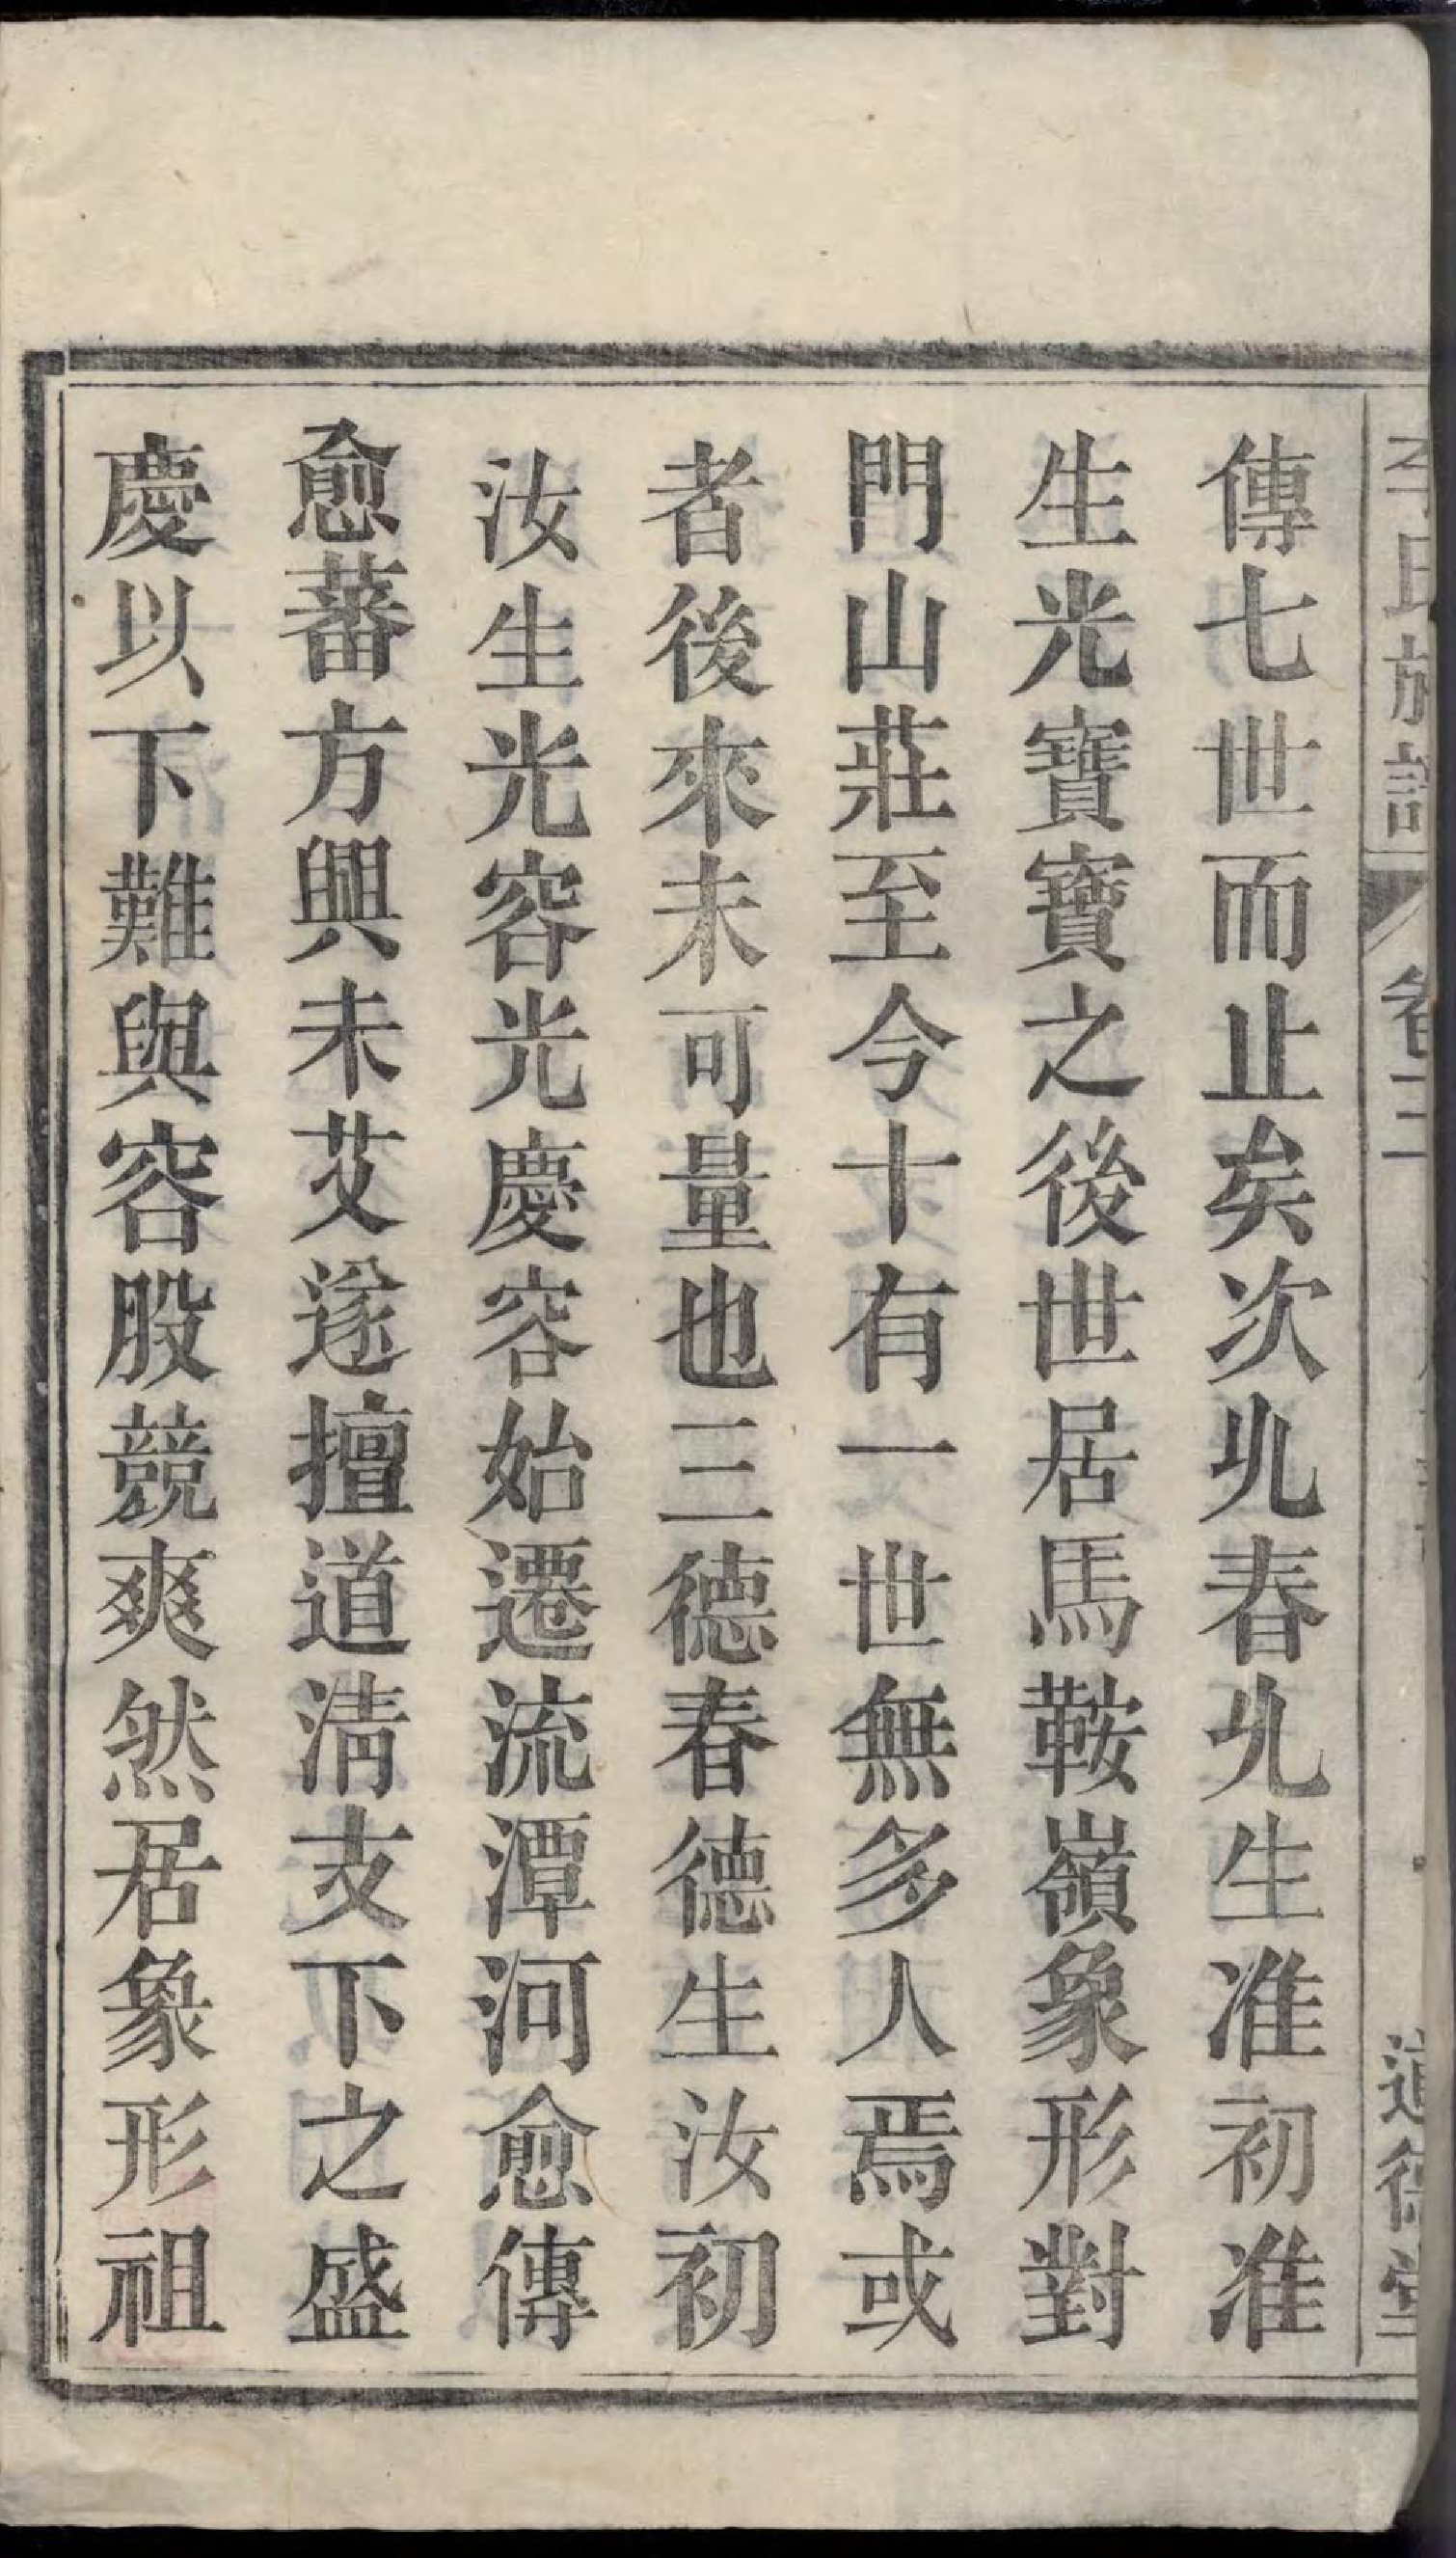 李氏族譜 卷 道德堂
傳七世而止矣次春生准初准
生光寶寶之後世居馬鞍嶺象形對
門山莊至今十有一世無多人焉或
者後來未可量也三德春德生汝初
汝生光容光慶容始遷流潭河愈傳
愈蕃方興未艾遂擅道清支下之盛
慶以下難與容股競爽然居象形祖